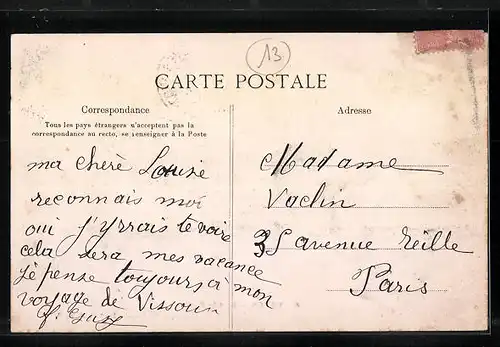 13
CARTE POSTALE
Correspondance
Tous les pays étrangers n'acceptent pas la
correspondance au recto, se renseigner à la Poste
ma cherè Louise
reconnais moi
oui j'yrrais te voire
cela sera mes vacance
je pense toujours à mon
voyage de
Adresse
Madame
Vaclin
35 avenue reille
Paris